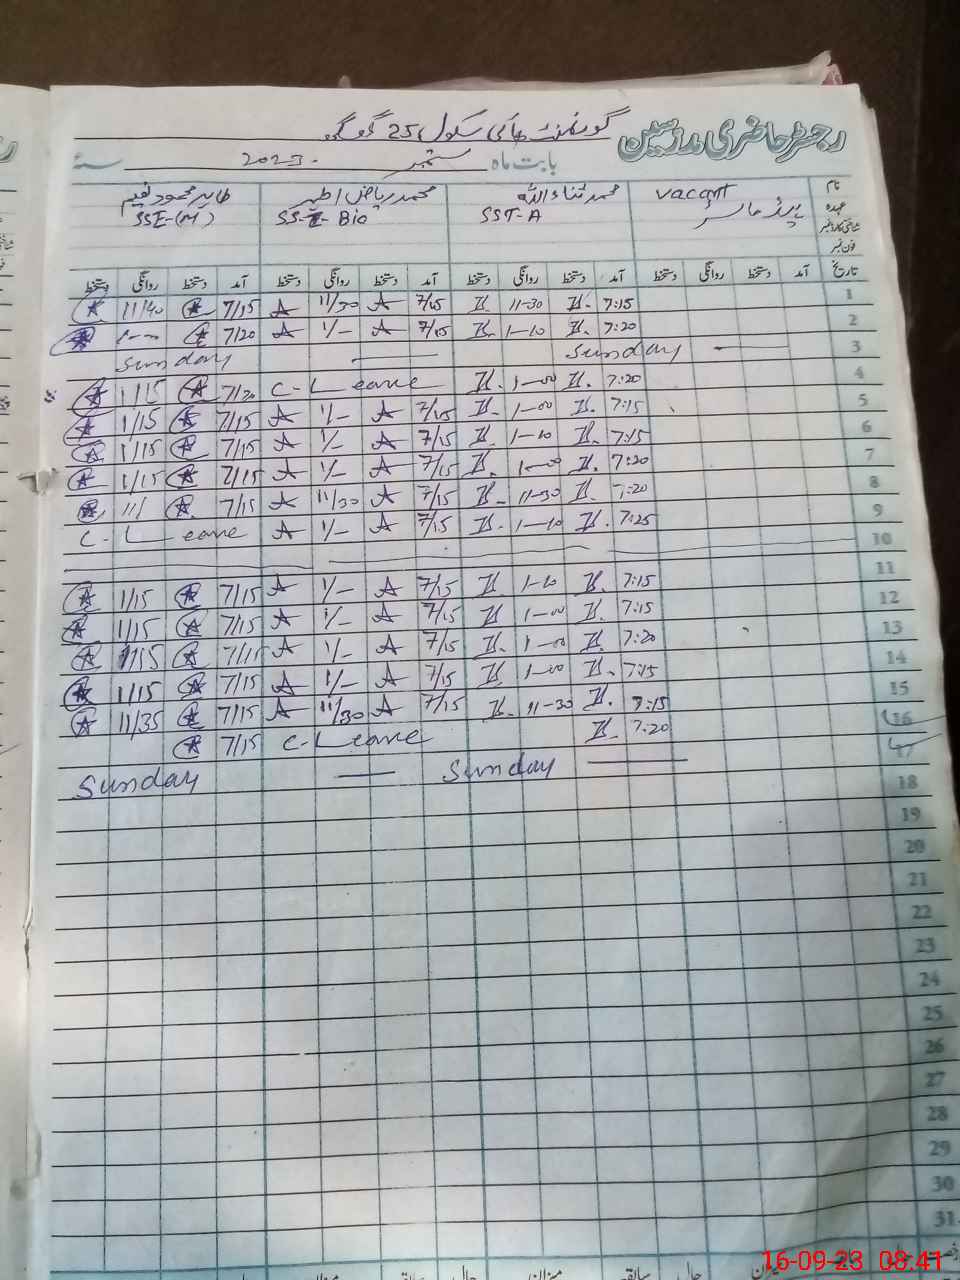 رجسٹر حاضری مدرسین گورنمنٹ ہائی سکول 25
بابت ماہ ستمبر 2023ء سنہ
نام vacant محمد ثناء اللہ محمد ریاض اطہر طاہر محمود نعیم
عہدہ ہیڈ ماسٹر SST-A SSE-Bio SSE-(M)
شناختی کارڈ نمبر
فون نمبر
تاریخ آمد دستخط روانگی دستخط آمد دستخط روانگی دستخط آمد دستخط روانگی دستخط آمد دستخط روانگی دستخط
1 7:15 11-30 7/15 11/30 7/15 11/40
2 7:20 1-10 7/15 1/- 7/20
3 Sunday Sunday
4 7:20 1-00 C-Leave 7/20 1/15
5 7:15 1-00 7/15 1/- 7/15 1/15
6 7:15 1-10 7/15 1/- 7/15 1/15
7 7:20 1-00 7/15 1/- 7/15 1/15
8 7:20 11-30 7/15 11/30 7/15 11/
9 7:25 1-10 7/15 1/- C-Leave
10
11 7:15 1-10 7/15 1/- 7/15 1/15
12 7:15 1-00 7/15 1/- 7/15 1/15
13 7:20 1-00 7/15 1/- 7/15 1/15
14 7:15 1-00 7/15 1/- 7/15 1/15
15 7:15 11-30 7/15 11/30 7/15 11/35
16 7:20 C-Leave 7/15
17 Sunday Sunday
18
19
20
21
22
23
24
25
26
27
28
29
30
31
حال سابقہ میزان حال سابقہ میزان حال
16-09-23 08:41